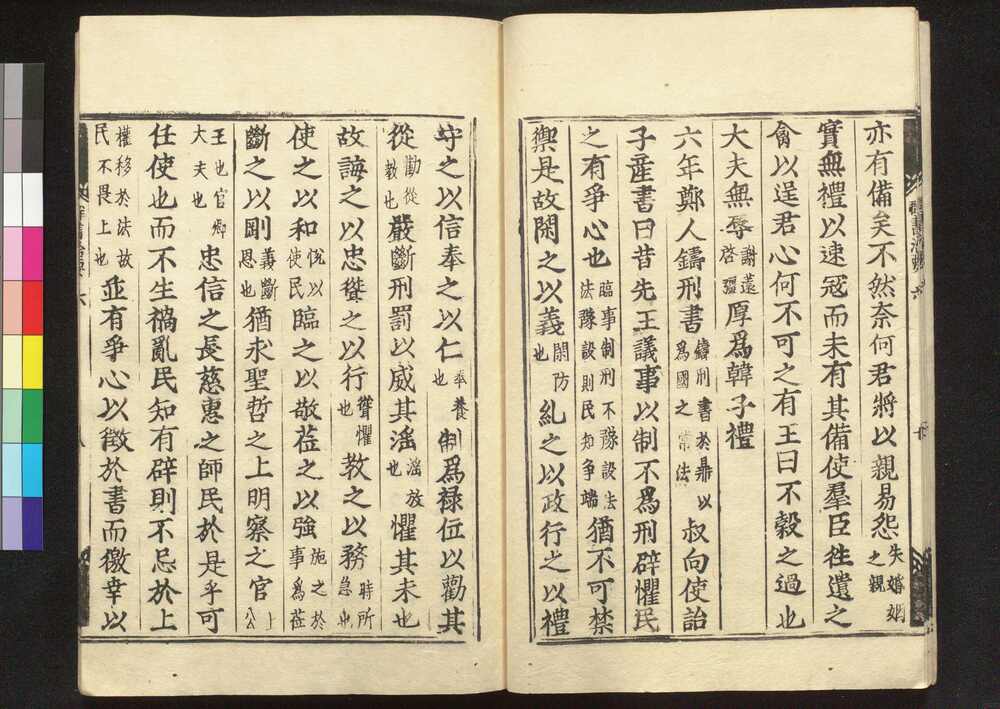 亦有備矣不然奈何君將以親易怨失婚姻之親
實無禮以速冦而未有其備使羣臣徃遺之
禽以逞君心何不可之有王曰不穀之過也
大夫無辱謝薳啓彊厚爲韓子禮
六年鄭人鑄刑書鑄刑書於鼎以爲國之常法叔向使詒
子産書曰昔先王議事以制不爲刑辟懼民
之有爭心也臨事制刑不豫設法法豫設則民知争端猶不可禁
禦是故閑之以義閑防也糺之以政行之以禮
守之以信奉之以仁奉養也制爲禄位以勸其
從勸從教也嚴斷刑罰以威其滛滛放也懼其未也
故誨之以忠聳之以行聳懼也教之以務時所急也
使之以和悅以使民臨之以敬莅之以強施之於事爲莅
斷之以剛義斷恩也猶求聖哲之上明察之官上公
王也官卿大夫也忠信之長慈惠之師民於是乎可
任使也而不生禍亂民知有辟則不忌於上
權移於法故民不畏上也並有爭心以徵於書而徼幸以